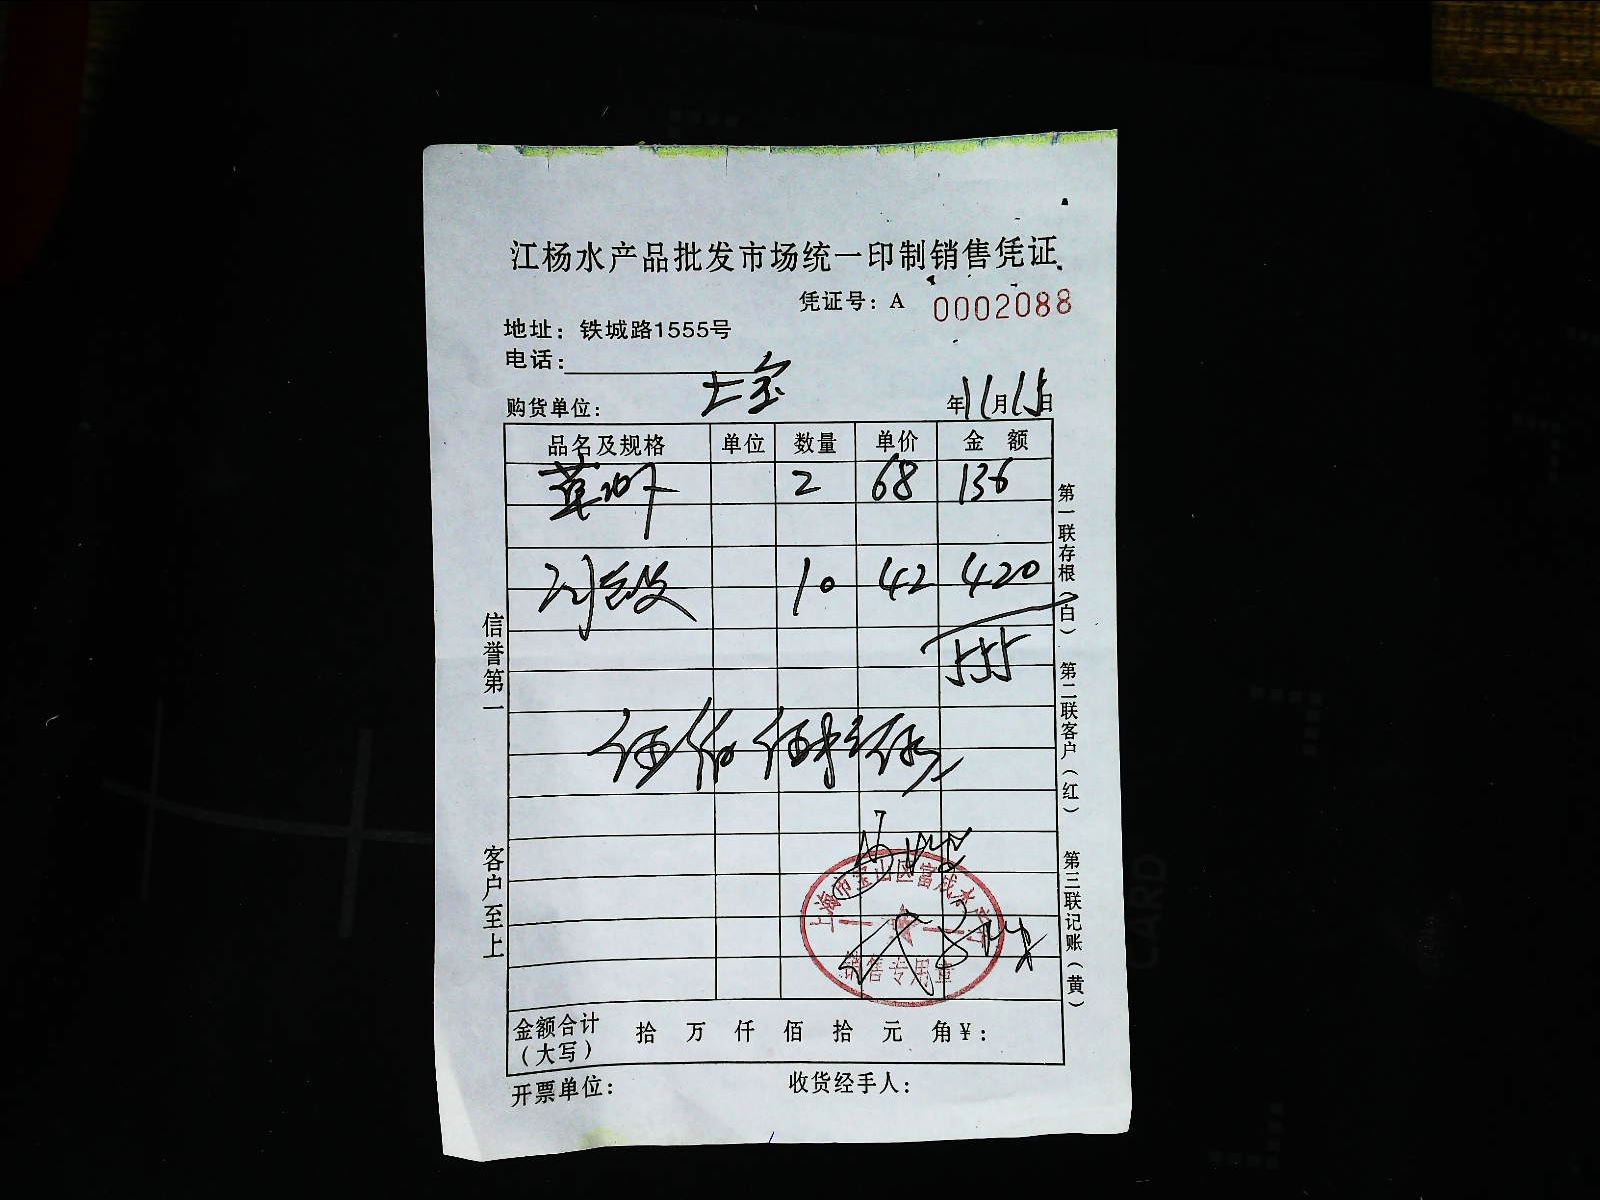 江杨水产品批发市场统一印制销售凭证
凭证号：A 0002088
地址：铁城路1555号
电话：
购货单位： 年11月15日
品名及规格 单位 数量 单价 金额
草虾 2 68 136
10 42 420
555
伍佰伍拾伍元
上海市宝山区富成水产
销售专用章
金额合计（大写） 拾 万 仟 佰 拾 元 角 ¥：
开票单位： 收货经手人：
信誉第一 客户至上
第一联存根（白） 第二联客户（红） 第三联记账（黄）